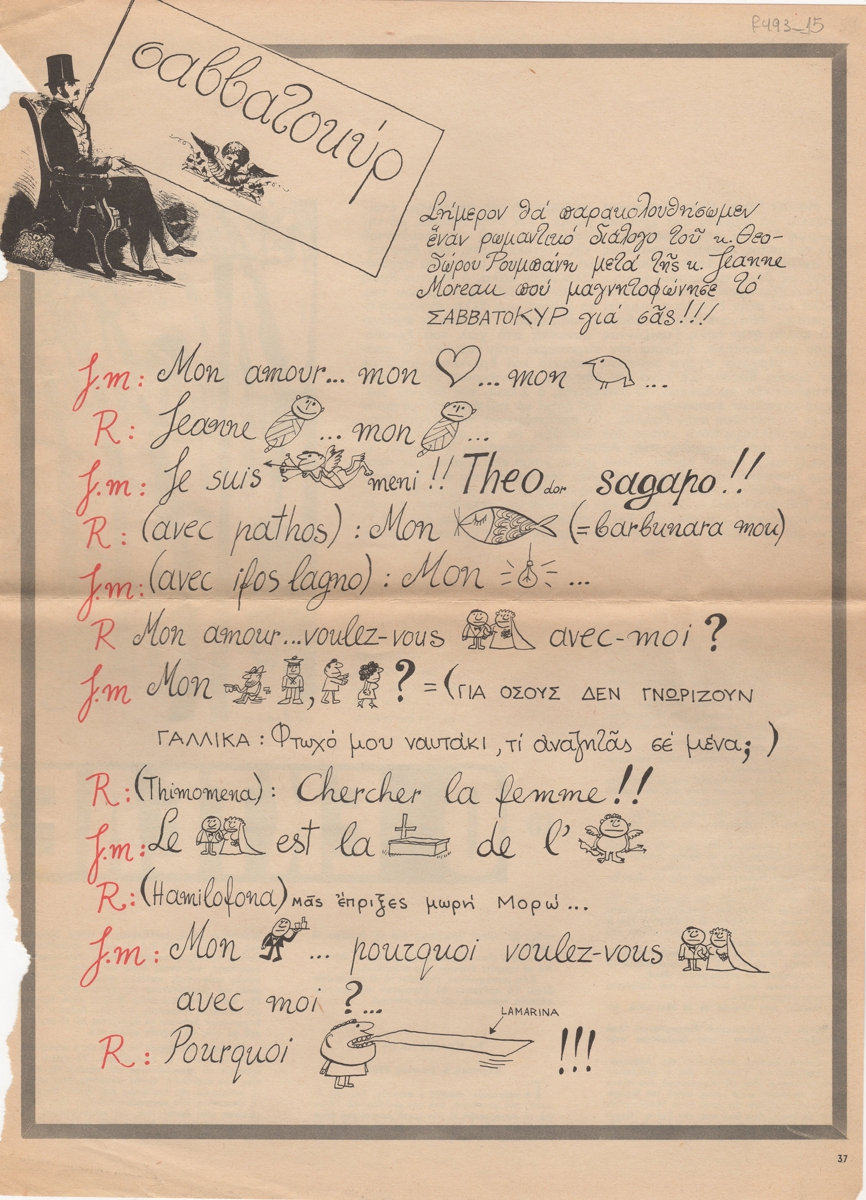 F493_15
σαββατοκύρ
Σήμερον θά παρακολουθήσωμεν
ἕναν ρωμαντικό διάλογο τοῦ κ. Θεο-
δώρου Ρουμπάνη μετά τῆς κ. Jeanne
Moreau πού μαγνητοφώνησε τό
ΣΑΒΒΑΤΟΚΥΡ γιά σᾶς!!!
J.m: Mon amour... mon ... mon ...
R: Jeanne ... mon ...
J.m: Je suis meni!! Theodor sagapo!!
R: (avec pathos): Mon (=barbunara mou)
J.m: (avec ifos lagno): Mon ...
R Mon amour...voulez-vous avec-moi?
J.m Mon , ? = (ΓΙΑ ΟΣΟΥΣ ΔΕΝ ΓΝΩΡΙΖΟΥΝ
ΓΑΛΛΙΚΑ: Φτωχό μου ναυτάκι, τί ἀναζητᾶς σέ μένα;)
R: (Thimomena): Chercher la femme!!
J.m: Le est la de l'
R: (Hamilofona) μᾶς ἔπριξες μωρή Μορώ...
J.m: Mon ... pourquoi voulez-vous
avec moi?...
LAMARINA
R: Pourquoi !!!
37